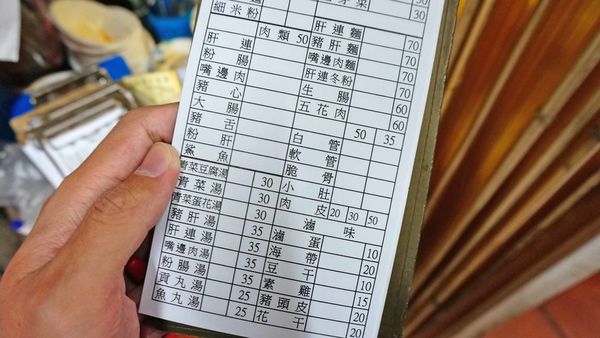 細米粉
肉類 50
肝連
粉腸
嘴邊肉
豬心
大腸
豬舌
粉肝
鯊魚
青菜豆腐湯 30
青菜湯 30
青菜蛋花湯 30
豬肝湯 35
肝連湯 35
嘴邊肉湯 35
粉腸湯 35
貢丸湯 25
魚丸湯 25
30
30
肝連麵 70
豬肝麵 70
嘴邊肉麵 70
肝連冬粉 70
生腸 60
五花肉 60
50 35
白管
軟管
脆骨
小肚
肉皮 20 30 50
滷味
滷蛋 10
海帶 20
豆干 10
素雞 15
豬頭皮 20
花干 20